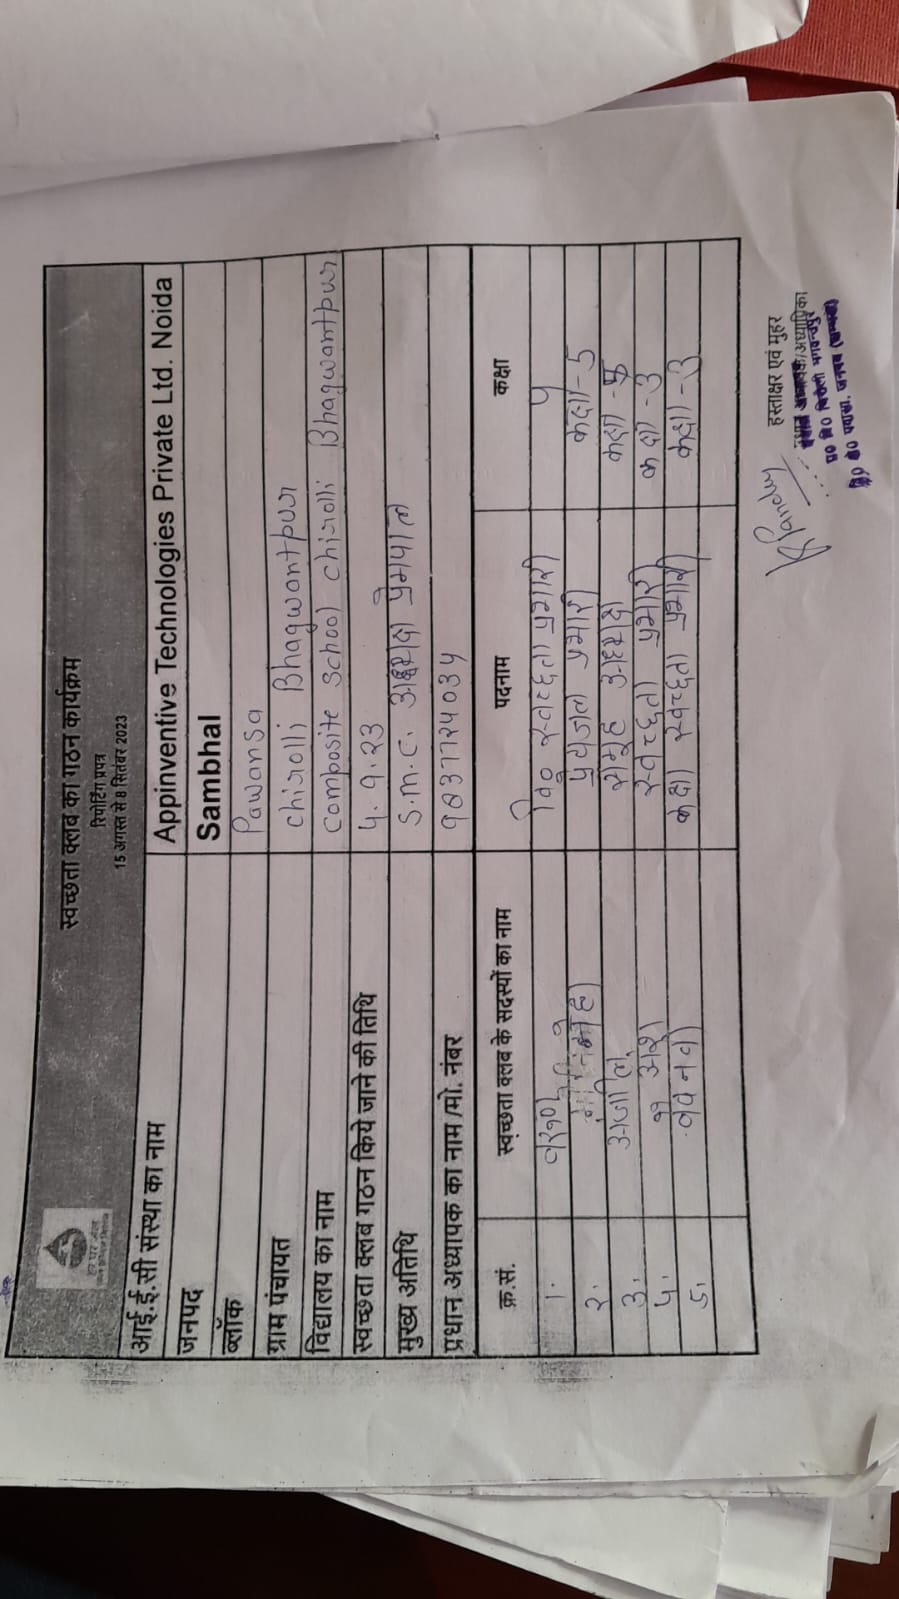 स्वच्छता क्लब का गठन कार्यक्रम
रिपोर्टिंग प्रपत्र
15 अगस्त से 8 सितंबर 2023
हर घर जल
आई.ई.सी संस्था का नाम Appinventive Technologies Private Ltd. Noida
जनपद Sambhal
ब्लॉक Pawansa
ग्राम पंचायत chirolli Bhagwantpur
विद्यालय का नाम composite school chirolli Bhagwantpur
स्वच्छता क्लब गठन किये जाने की तिथि 4.9.23
मुख्य अतिथि S.M.C. अध्यक्ष प्रेमपाल
प्रधान अध्यापक का नाम/मो. नंबर
क्र.सं. स्वच्छता क्लब के सदस्यों का नाम पदनाम कक्षा
1. वि० स्वच्छता प्रभारी
२. पेयजल प्रभारी कक्षा-5
3. समूह अध्यक्ष कक्षा
४. अंश स्वच्छता प्रभारी कक्षा-3
5. कक्षा स्वच्छता प्रभारी कक्षा-3
हस्ताक्षर एवं मुहर